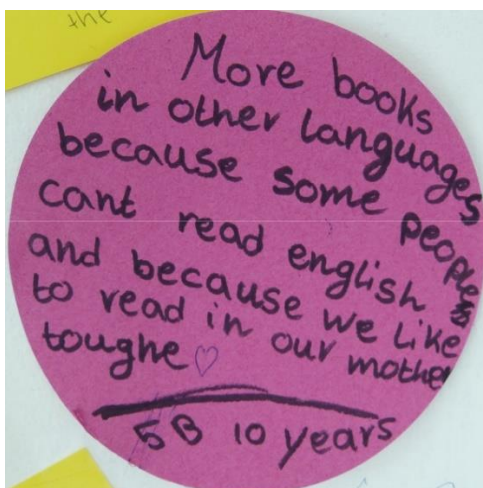 the
More books
in other languages
because some people
cant read english
and because we like
to read in our mother
toughe ♡
5B 10 years